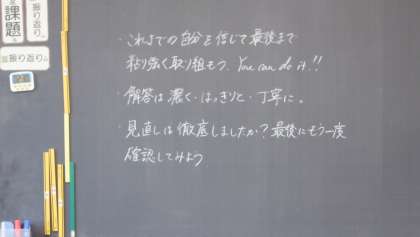 課題
振り返り
振り返り
・これまでの自分を信じて最後まで
粘り強く取り組もう。You can do it!!
・解答は濃く・はっきりと・丁寧に。
・見直しは徹底しましたか？最後にもう一度
確認してみよう